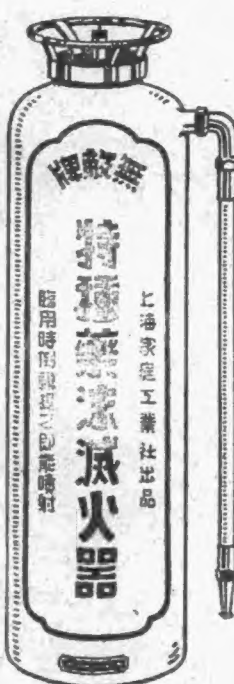 無敵牌
上海家庭工業社出品
特種藥沫滅火器
臨用時倒即能噴射